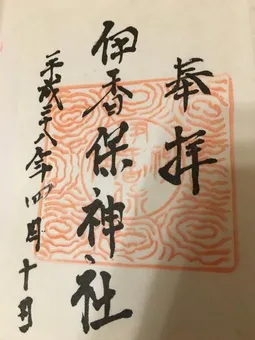 奉拝
伊香保神社
平成二八年四月十日